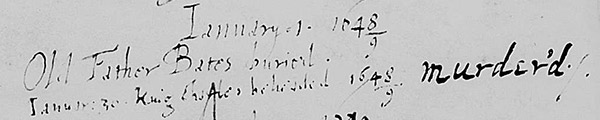 January. 1. 1648/9
Old Father Bates buried.
Januar: 30. King Charles beheaded 1648/9 murder'd.